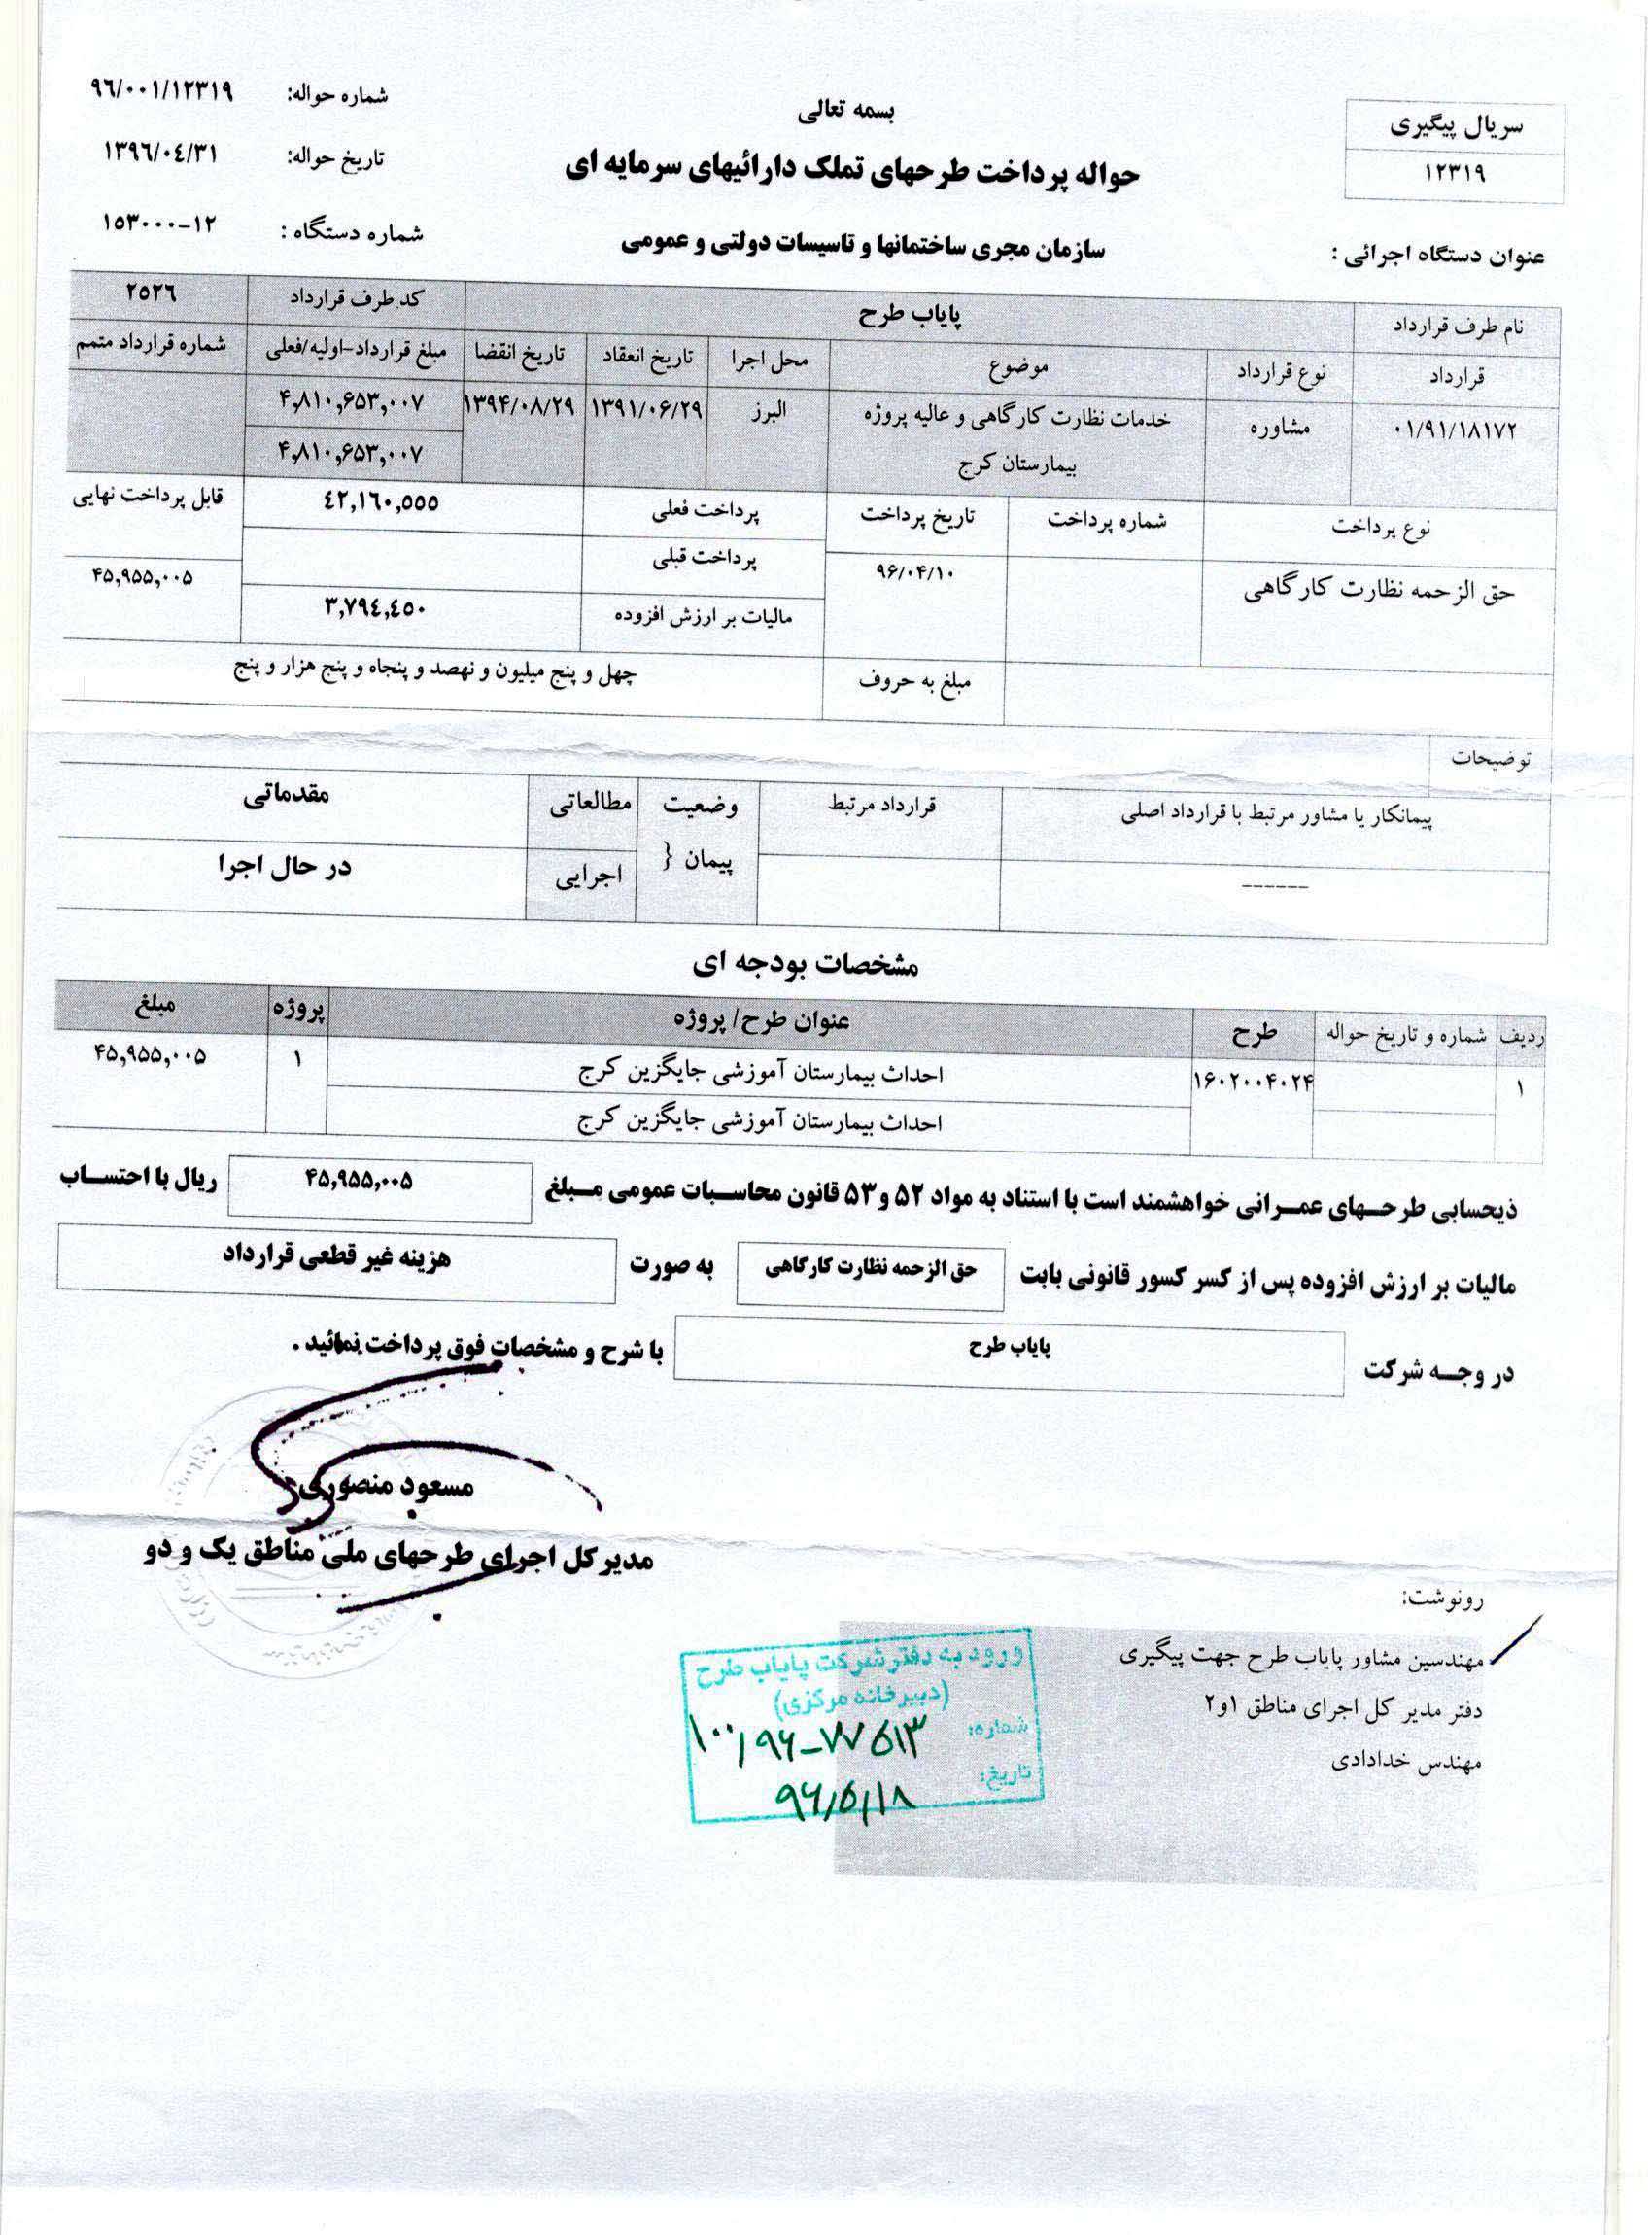 بسمه تعالی
سریال پیگیری
۱۲۳۱۹
شماره حواله: ۹۶/۰۰۱/۱۲۳۱۹
حواله پرداخت طرحهای تملک دارائیهای سرمایه ای
تاریخ حواله: ۱۳۹۶/۰۴/۳۱
عنوان دستگاه اجرائی : سازمان مجری ساختمانها و تاسیسات دولتی و عمومی
شماره دستگاه : ۱۵۳۰۰۰-۱۲
نام طرف قرارداد پایاب طرح کد طرف قرارداد ۲۵۲۶
قرارداد نوع قرارداد موضوع محل اجرا تاریخ انعقاد تاریخ انقضا مبلغ قرارداد-اولیه/فعلی شماره قرارداد متمم
۰۱/۹۱/۱۸۱۷۲ مشاوره خدمات نظارت کارگاهی و عالیه پروژه البرز ۱۳۹۱/۰۶/۲۹ ۱۳۹۴/۰۸/۲۹ ۴,۸۱۰,۶۵۳,۰۰۷
بیمارستان کرج ۴,۸۱۰,۶۵۳,۰۰۷
نوع پرداخت شماره پرداخت تاریخ پرداخت پرداخت فعلی ۴۲,۱۶۰,۵۵۵ قابل پرداخت نهایی
پرداخت قبلی
حق الزحمه نظارت کارگاهی ۹۶/۰۴/۱۰ مالیات بر ارزش افزوده ۳,۷۹۴,۴۵۰ ۴۵,۹۵۵,۰۰۵
مبلغ به حروف چهل و پنج میلیون و نهصد و پنجاه و پنج هزار و پنج
توضیحات
پیمانکار یا مشاور مرتبط با قرارداد اصلی قرارداد مرتبط وضعیت مطالعاتی مقدماتی
------ پیمان { اجرایی در حال اجرا
مشخصات بودجه ای
ردیف شماره و تاریخ حواله طرح عنوان طرح/ پروژه پروژه مبلغ
۱ ۱۶۰۲۰۰۴۰۲۴ احداث بیمارستان آموزشی جایگزین کرج ۱ ۴۵,۹۵۵,۰۰۵
احداث بیمارستان آموزشی جایگزین کرج
ذیحسابی طرحهای عمرانی خواهشمند است با استناد به مواد ۵۲ و۵۳ قانون محاسبات عمومی مبلغ ۴۵,۹۵۵,۰۰۵ ریال با احتساب
مالیات بر ارزش افزوده پس از کسر کسور قانونی بابت حق الزحمه نظارت کارگاهی به صورت هزینه غیر قطعی قرارداد
در وجه شرکت پایاب طرح با شرح و مشخصات فوق پرداخت نمائید .
مسعود منصوری
مدیرکل اجرای طرحهای ملی مناطق یک و دو
رونوشت:
مهندسین مشاور پایاب طرح جهت پیگیری
دفتر مدیر کل اجرای مناطق ۱و۲
مهندس خدادادی
ورود به دفتر شرکت پایاب طرح
(دبیرخانه مرکزی)
شماره: ۱۰۰/۹۶-۷۷۵۱۳
تاریخ: ۹۶/۵/۱۸